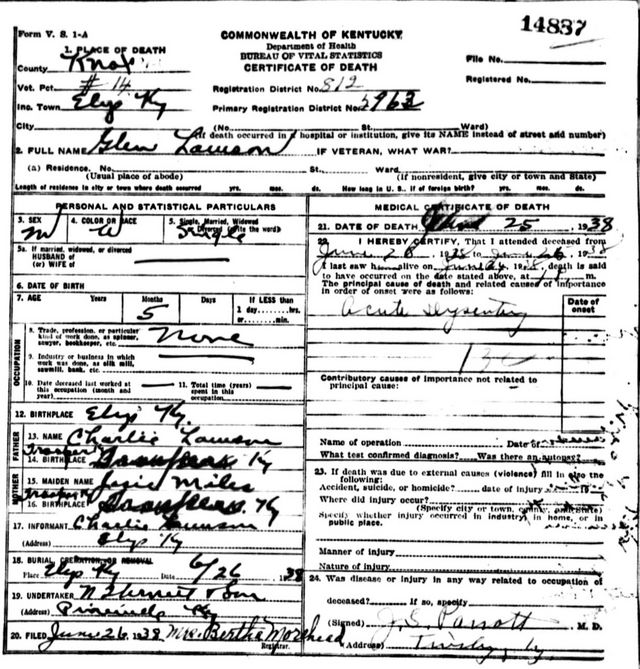 Form V. S. 1-A
14837
COMMONWEALTH OF KENTUCKY
Department of Health
BUREAU OF VITAL STATISTICS
CERTIFICATE OF DEATH
1. PLACE OF DEATH
County Knox
Vot. Pct. #14
Inc. Town Elys Ky
City
File No.
Registered No.
Registration District No. 812
Primary Registration District No. 5963
(No. St. Ward)
(If death occurred in hospital or institution, give its NAME instead of street and number)
2. FULL NAME Glen Lawson IF VETERAN, WHAT WAR?
(a) Residence. No. St. Ward
(Usual place of abode) (If nonresident, give city or town and State)
Length of residence in city or town where death occurred yrs. mos. ds. How long in U. S., if of foreign birth? yrs. mos. ds.
PERSONAL AND STATISTICAL PARTICULARS
3. SEX M
4. COLOR OR RACE W
5. Single, Married, Widowed
Divorced (write the word) Single
5a. If married, widowed, or divorced
HUSBAND of
(or) WIFE of
6. DATE OF BIRTH
7. AGE Years Months Days If LESS than
5 1 day, hrs.
or min.
OCCUPATION
8. Trade, profession, or particular
kind of work done, as spinner,
sawyer, bookkeeper, etc. None
9. Industry or business in which
work was done, as silk mill,
sawmill, bank, etc.
10. Date deceased last worked at
this occupation (month and
year)
11. Total time (years)
spent in this
occupation
12. BIRTHPLACE Elys Ky
FATHER
13. NAME Charlie Lawson
14. BIRTHPLACE Ky
MOTHER
15. MAIDEN NAME Miles
16. BIRTHPLACE Ky
17. INFORMANT Charlie Lawson
(Address) Elys Ky
18. BURIAL, CREMATION OR REMOVAL
Place Elys Ky Date 6/26 1938
19. UNDERTAKER & Son
(Address) Pineville Ky
20. FILED June 26 1938 Mrs. Bertha Morehead
MEDICAL CERTIFICATE OF DEATH
21. DATE OF DEATH 25 1938
22. I HEREBY CERTIFY, That I attended deceased from
June to June 1938
I last saw him alive on June death is said
to have occurred on the date stated above, at
The principal cause of death and related causes of importance
in order of onset were as follows:
Date of
onset
Acute Dysentery
Contributory causes of importance not related to
principal cause:
Name of operation Date of
What test confirmed diagnosis? Was there an autopsy?
23. If death was due to external causes (violence) fill in also the
following:
Accident, suicide, or homicide? date of injury 19
Where did injury occur?
(Specify city or town, county, and State)
Specify whether injury occurred in industry, in home, or in
public place.
Manner of injury
Nature of injury
24. Was disease or injury in any way related to occupation of
deceased? If so, specify
(Signed) J. S. Parrott M. D.
(Address) Ky.